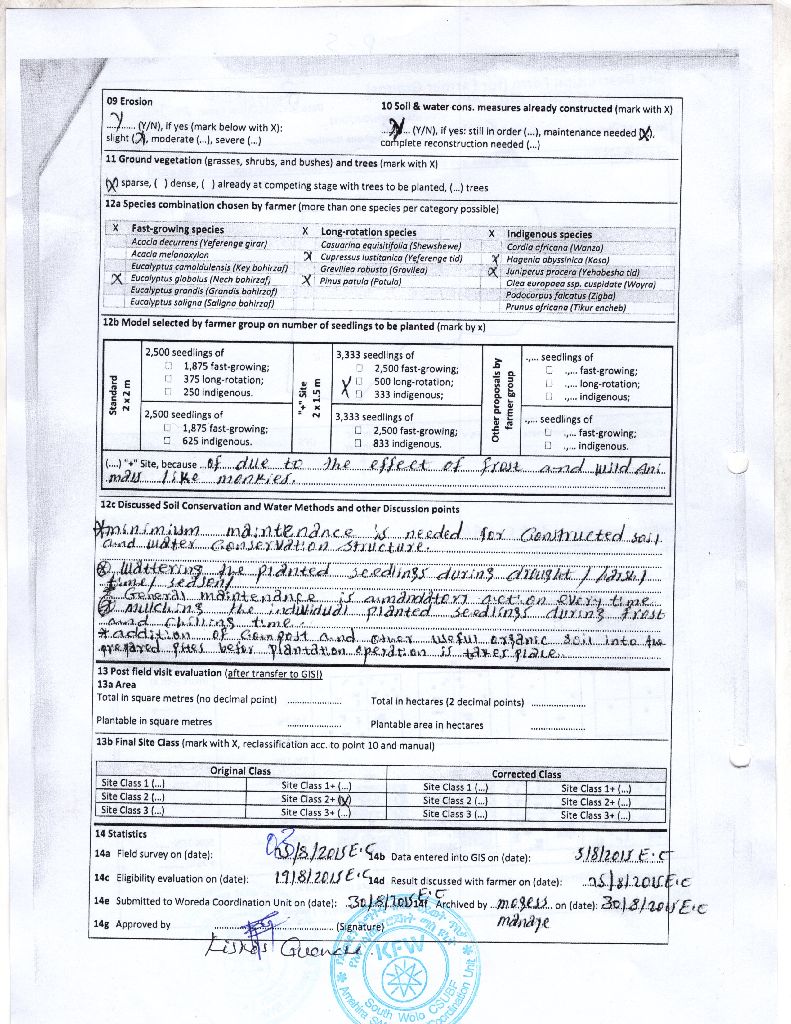 09 Erosion
10 Soil & water cons. measures already constructed (mark with X)
..Y... (Y/N), if yes (mark below with X):
slight (X), moderate (...), severe (...)
..Y... (Y/N), if yes: still in order (...), maintenance needed (X),
complete reconstruction needed (...)
11 Ground vegetation (grasses, shrubs, and bushes) and trees (mark with X)
(X) sparse, ( ) dense, ( ) already at competing stage with trees to be planted, (...) trees
12a Species combination chosen by farmer (more than one species per category possible)
X Fast-growing species X Long-rotation species X Indigenous species
Acacia decurrens (Yeferenge girar) Casuarina equisitifolia (Shewshewe) Cordia africana (Wanza)
Acacia melanoxylon X Cupressus lusitanica (Yeferenge tid) X Hagenia abyssinica (Kosa)
Eucalyptus camaldulensis (Key bahirzaf) Grevillea robusta (Gravilea) X Juniperus procera (Yehabesha tid)
X Eucalyptus globulus (Nech bahirzaf) X Pinus patula (Patula) Olea europaea ssp. cuspidate (Woyra)
Eucalyptus grandis (Grandis bahirzaf) Podocarpus falcatus (Zigba)
Eucalyptus saligna (Saligna bahirzaf) Prunus africana (Tikur encheb)
12b Model selected by farmer group on number of seedlings to be planted (mark by x)
Standard
2 x 2 m
2,500 seedlings of
1,875 fast-growing;
375 long-rotation;
250 indigenous.
2,500 seedlings of
1,875 fast-growing;
625 indigenous.
"+" Site
2 x 1.5 m
3,333 seedlings of
2,500 fast-growing;
X 500 long-rotation;
333 indigenous;
3,333 seedlings of
2,500 fast-growing;
833 indigenous.
Other proposals by
farmer group
.,... seedlings of
.,... fast-growing;
.,... long-rotation;
.,... indigenous;
.,... seedlings of
.,... fast-growing;
.,... indigenous.
(....) "+" Site, because of due to the effect of frost and wild Ani
mals like monkies.
12c Discussed Soil Conservation and Water Methods and other Discussion points
*minimium maintenance is needed for constructed soil
and water conservation structure.
Wattering the planted seedlings during drought /
time/ season/
General maintenance is a mandatory action every time
mulching the individual planted seedlings during frost
and chilling time.
*addition of compost and other useful organic soil into the
prepared pites befor plantation operation is taker place.
13 Post field visit evaluation (after transfer to GIS!)
13a Area
Total in square metres (no decimal point) .................. Total in hectares (2 decimal points) ..................
Plantable in square metres .................. Plantable area in hectares ..................
13b Final Site Class (mark with X, reclassification acc. to point 10 and manual)
Original Class Corrected Class
Site Class 1 (...) Site Class 1+ (...) Site Class 1 (...) Site Class 1+ (...)
Site Class 2 (...) Site Class 2+ (X) Site Class 2 (...) Site Class 2+ (...)
Site Class 3 (...) Site Class 3+ (...) Site Class 3 (...) Site Class 3+ (...)
14 Statistics
14a Field survey on (date): 03/8/2015 E.C 14b Data entered into GIS on (date): 5/8/2015 E.C
14c Eligibility evaluation on (date): 19/8/2015 E.C 14d Result discussed with farmer on (date): 25/8/2015 E.C
14e Submitted to Woreda Coordination Unit on (date): 30/8/2015 E.C 14f Archived by mogess on (date): 30/8/2015 E.C
manaye
14g Approved by .................. (Signature)
KFW
South Wolo CSUBF
Coordination Unit